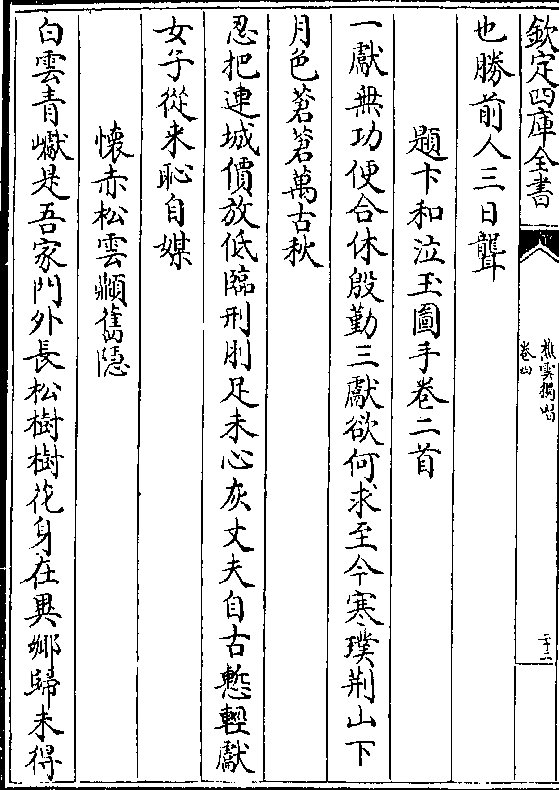 欽定四庫全書
樵雲獨唱
卷四
二十二
也勝前人三日聾
題卞和泣玉圖手卷二首
一獻無功便合休殷勤三獻欲何求至今寒璞荆山下
月色蒼蒼萬古秋
忍把連城價放低臨刑刖足未心灰丈夫自古慙輕獻
女子從来恥自媒
懷赤松雲巓舊隱
白雲青巘是吾家門外長松樹樹花身在異鄉歸未得